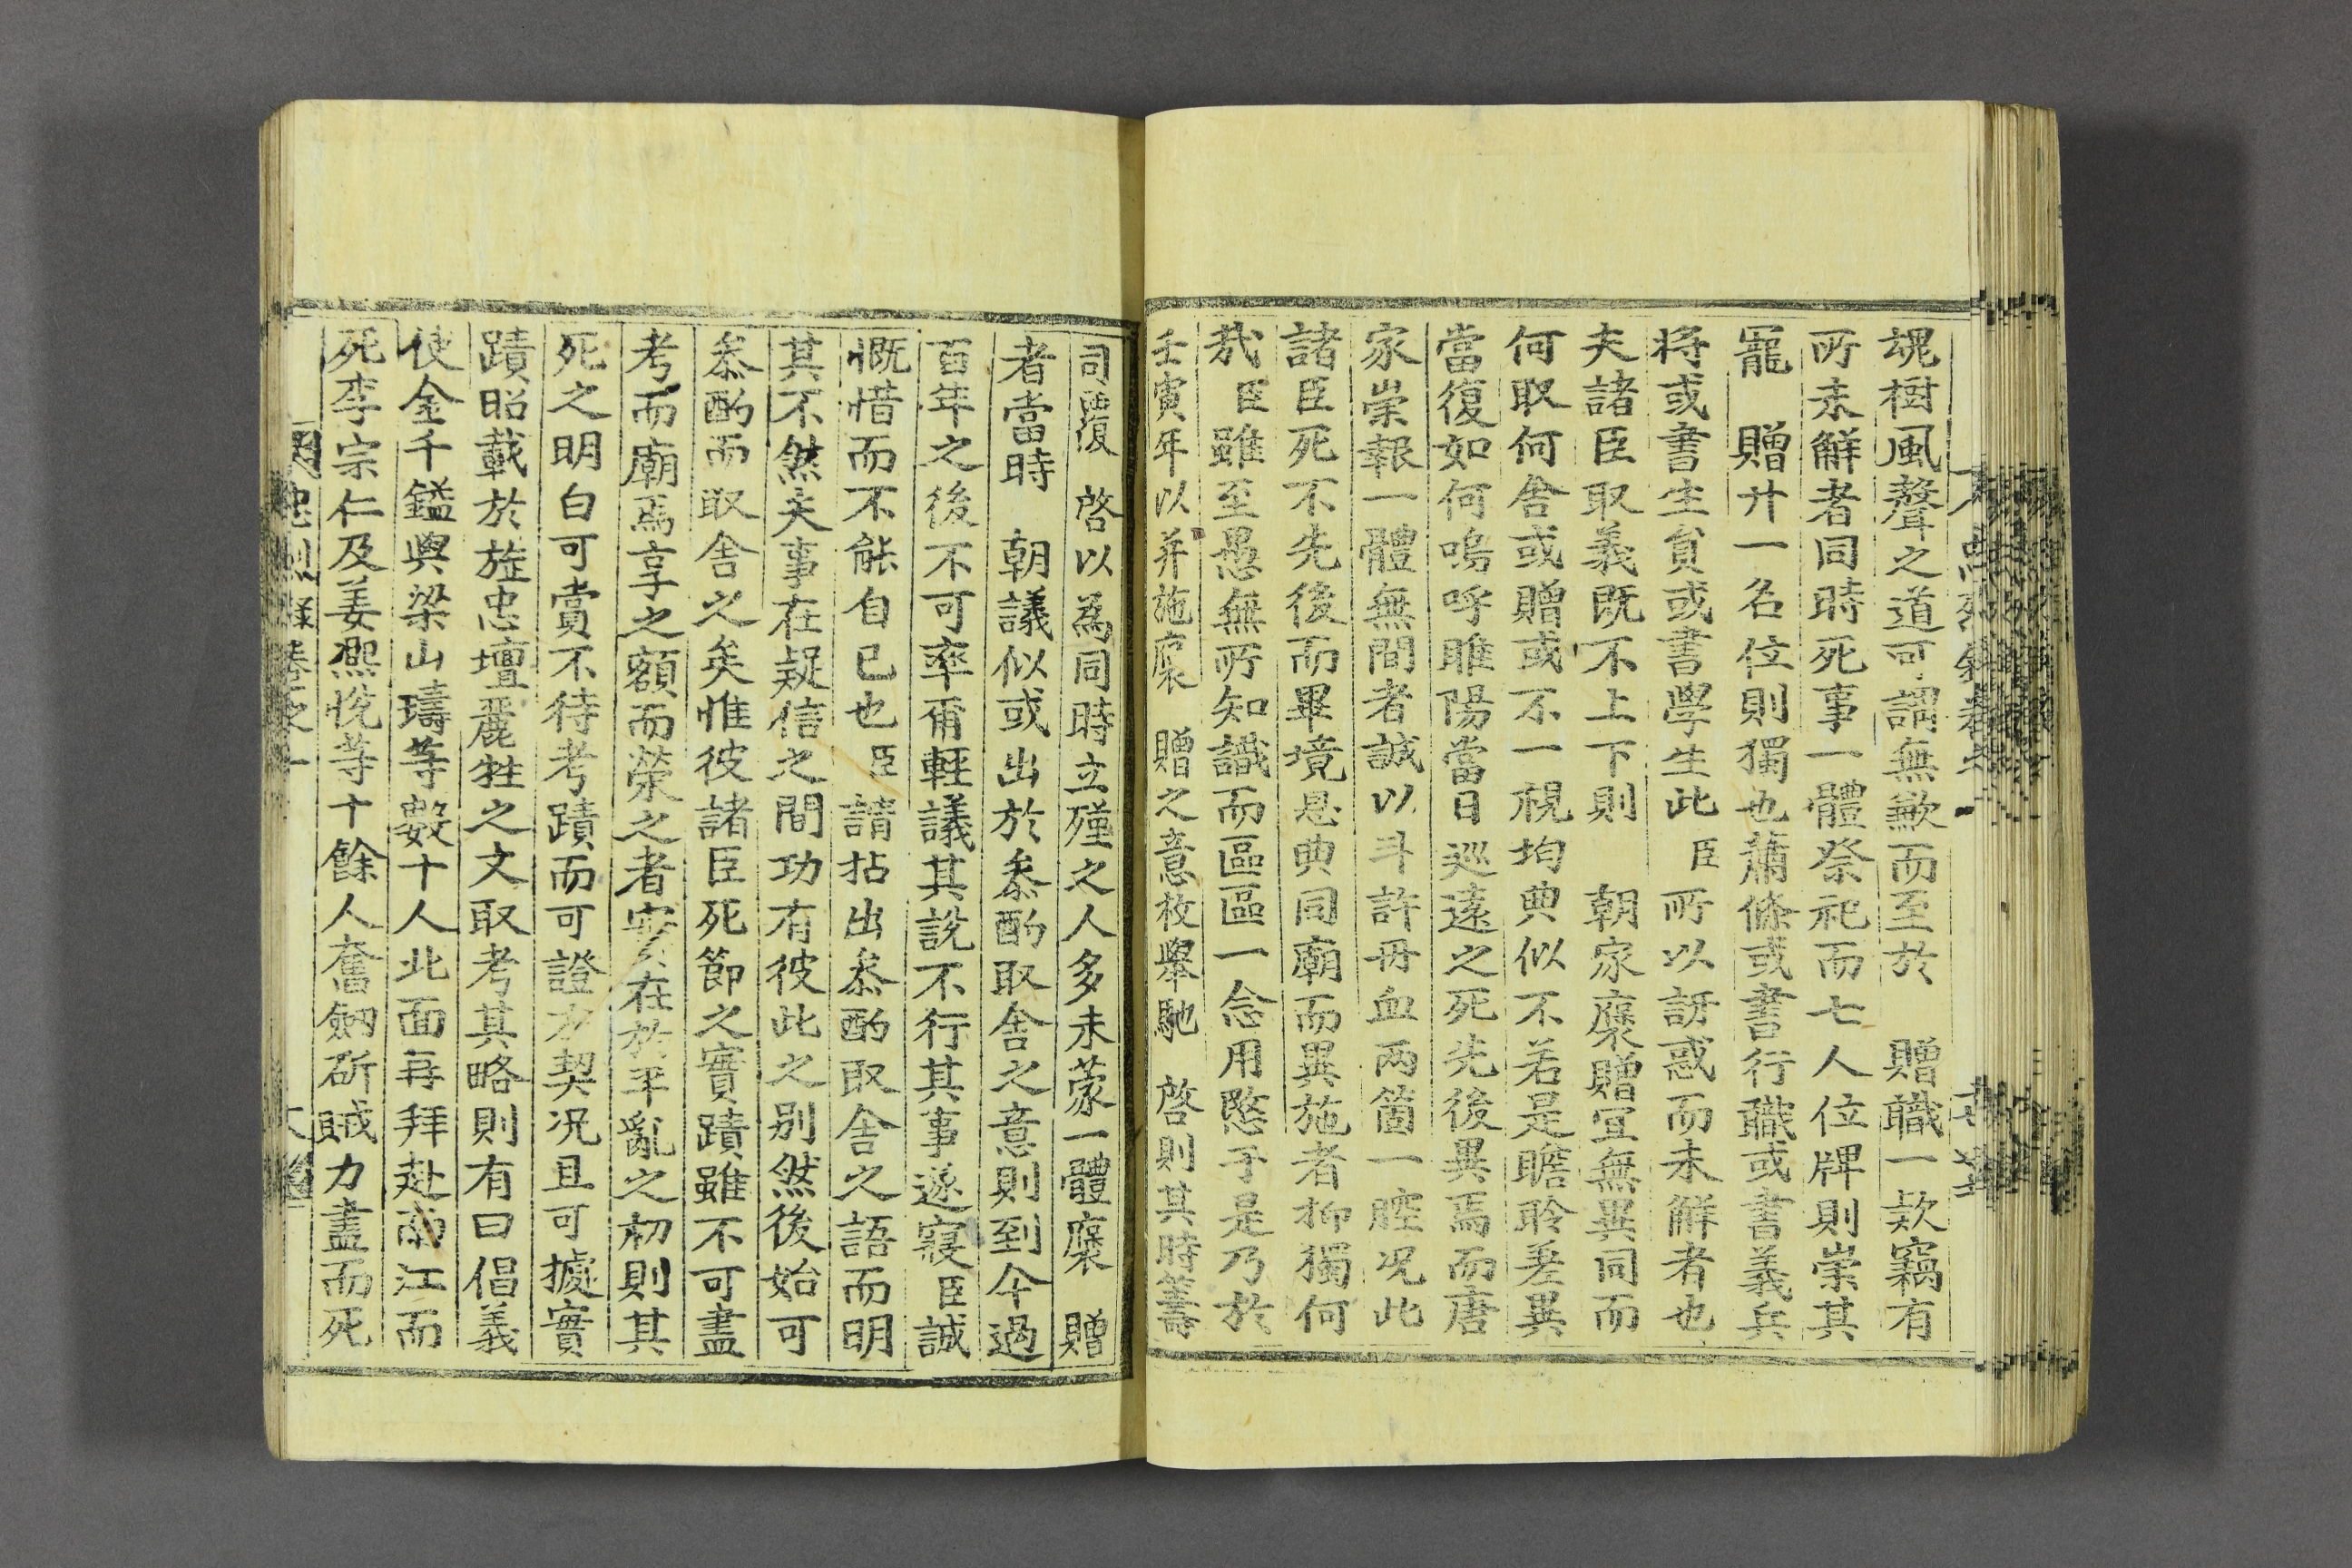 魂樹風聲之道可謂無歉而至於　贈職一款竊有
所未觧者同時死事一體祭祀而七人位牌則崇其
寵　贈廾一名位則獨也蕭條或書行職或書義兵
将或書生貟或書學生此臣所以訝惑而未觧者也
夫諸臣取義既不上下則　朝家襃贈宜無異同而
何取何舍或贈或不一視均典似不若是瞻聆差異
當復如何嗚呼睢陽當日巡遠之死先後異焉而唐
家崇報一體無間者誠以斗許丹血两箇一腔况此
諸臣死不先後而畢境恩典同廟而異施者抑獨何
㦲臣雖至愚無所知識而區區一念用愍于是乃於
壬寅年以并施襃　贈之意枚舉馳　啓則其時籌
司覆　啓以為同時立殣之人多未蒙一體襃　贈
者當時　朝議似或出於叅酌取舍之意則到今過
百年之後不可率爾輕議其說不行其事遂寢臣誠
慨惜而不能自已也臣請拈出叅酌取舍之語而明
其不然夫事在疑信之間功有彼此之别然後始可
叅酌而取舍之矣惟彼諸臣死節之實蹟雖不可盡
考而廟焉享之額而榮之者實在於平亂之初則其
死之明白可賞不待考蹟而可證左契况且可據實
蹟昭載於旌忠壇麗牲之文取考其略則有曰倡義
使金千鎰與梁山璹等數十人北面再拜赴南江而
死李宗仁及姜熙恱等十餘人奮劒斫賊力盡而死